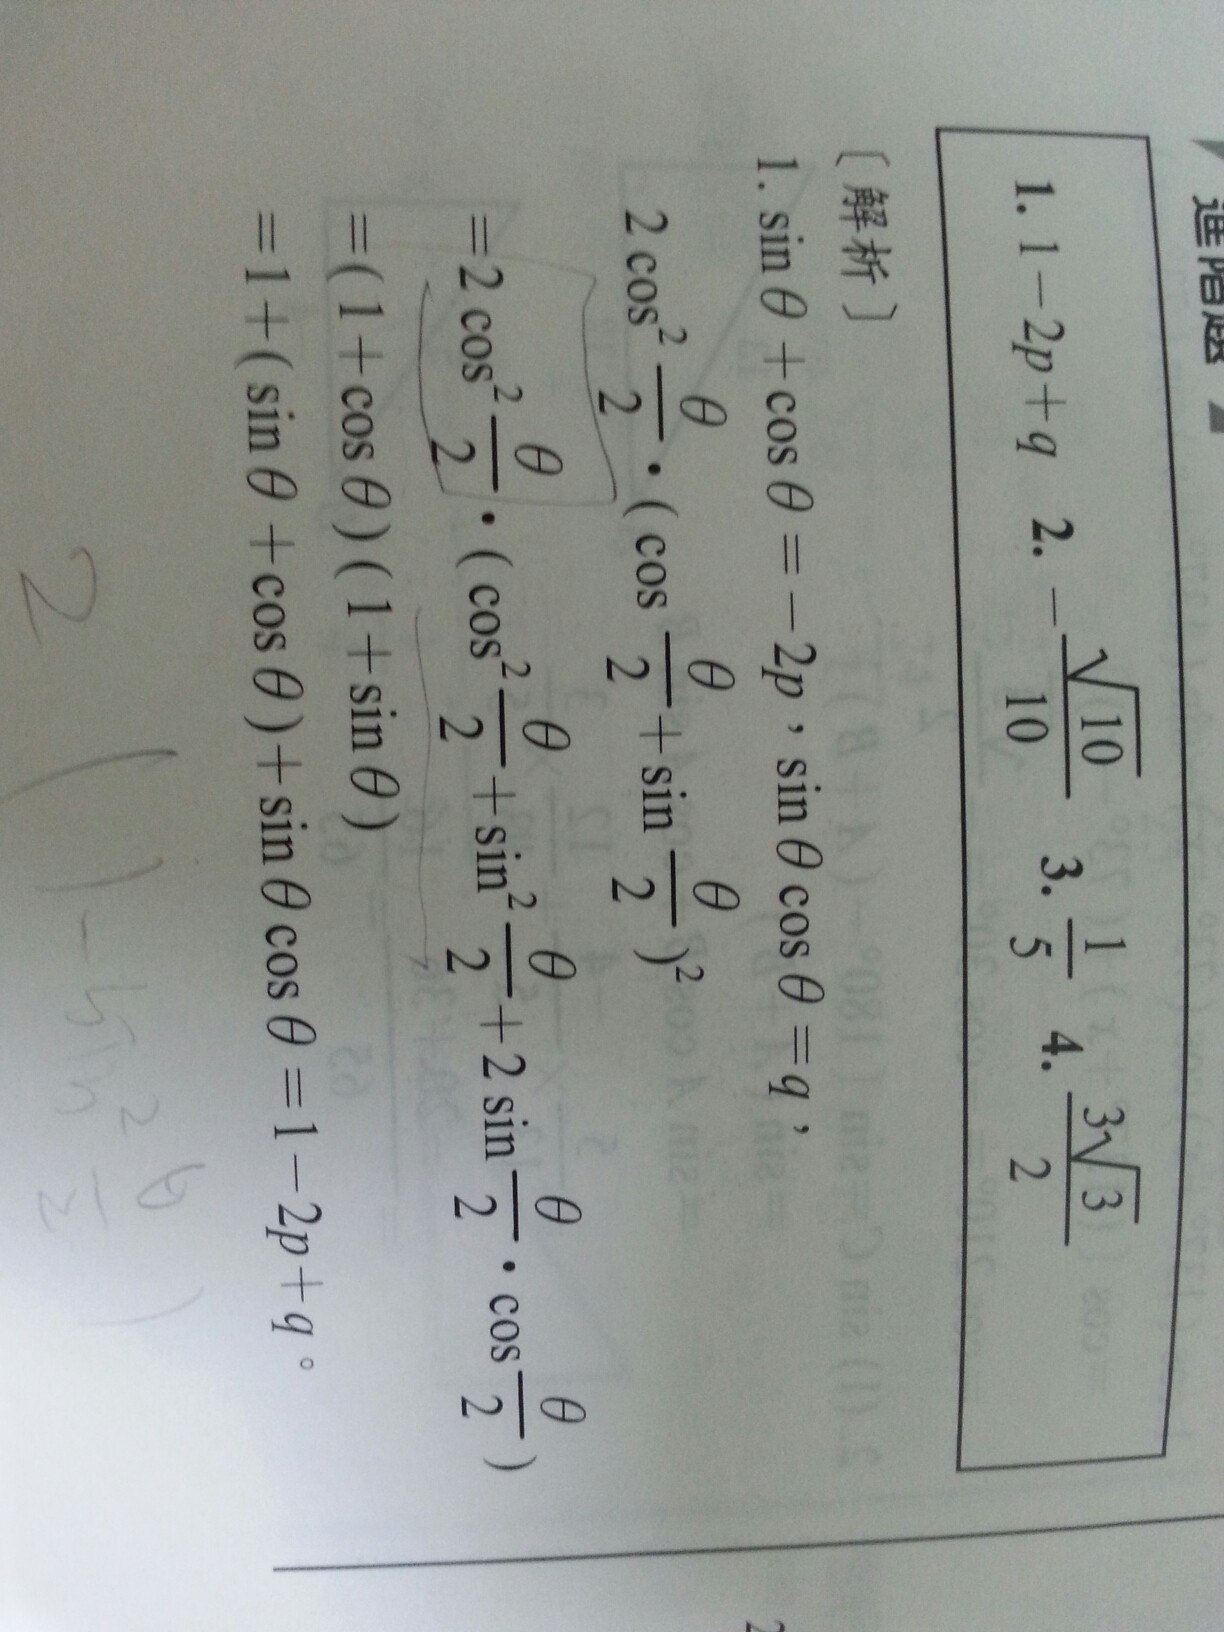 進階題
1. 1－2p＋q 2. －√10/10 3. 1/5 4. 3√3/2
〔解析〕
1. sin θ ＋cos θ ＝－2p，sin θ cos θ ＝q，
2 cos² θ/2 ·（cos θ/2 ＋sin θ/2）²
＝2 cos² θ/2 ·（cos² θ/2 ＋sin² θ/2 ＋2 sin θ/2 · cos θ/2）
＝(1＋cos θ)(1＋sin θ)
＝1＋(sin θ ＋cos θ)＋sin θ cos θ ＝1－2p＋q。
2 (1－sin² θ/2)